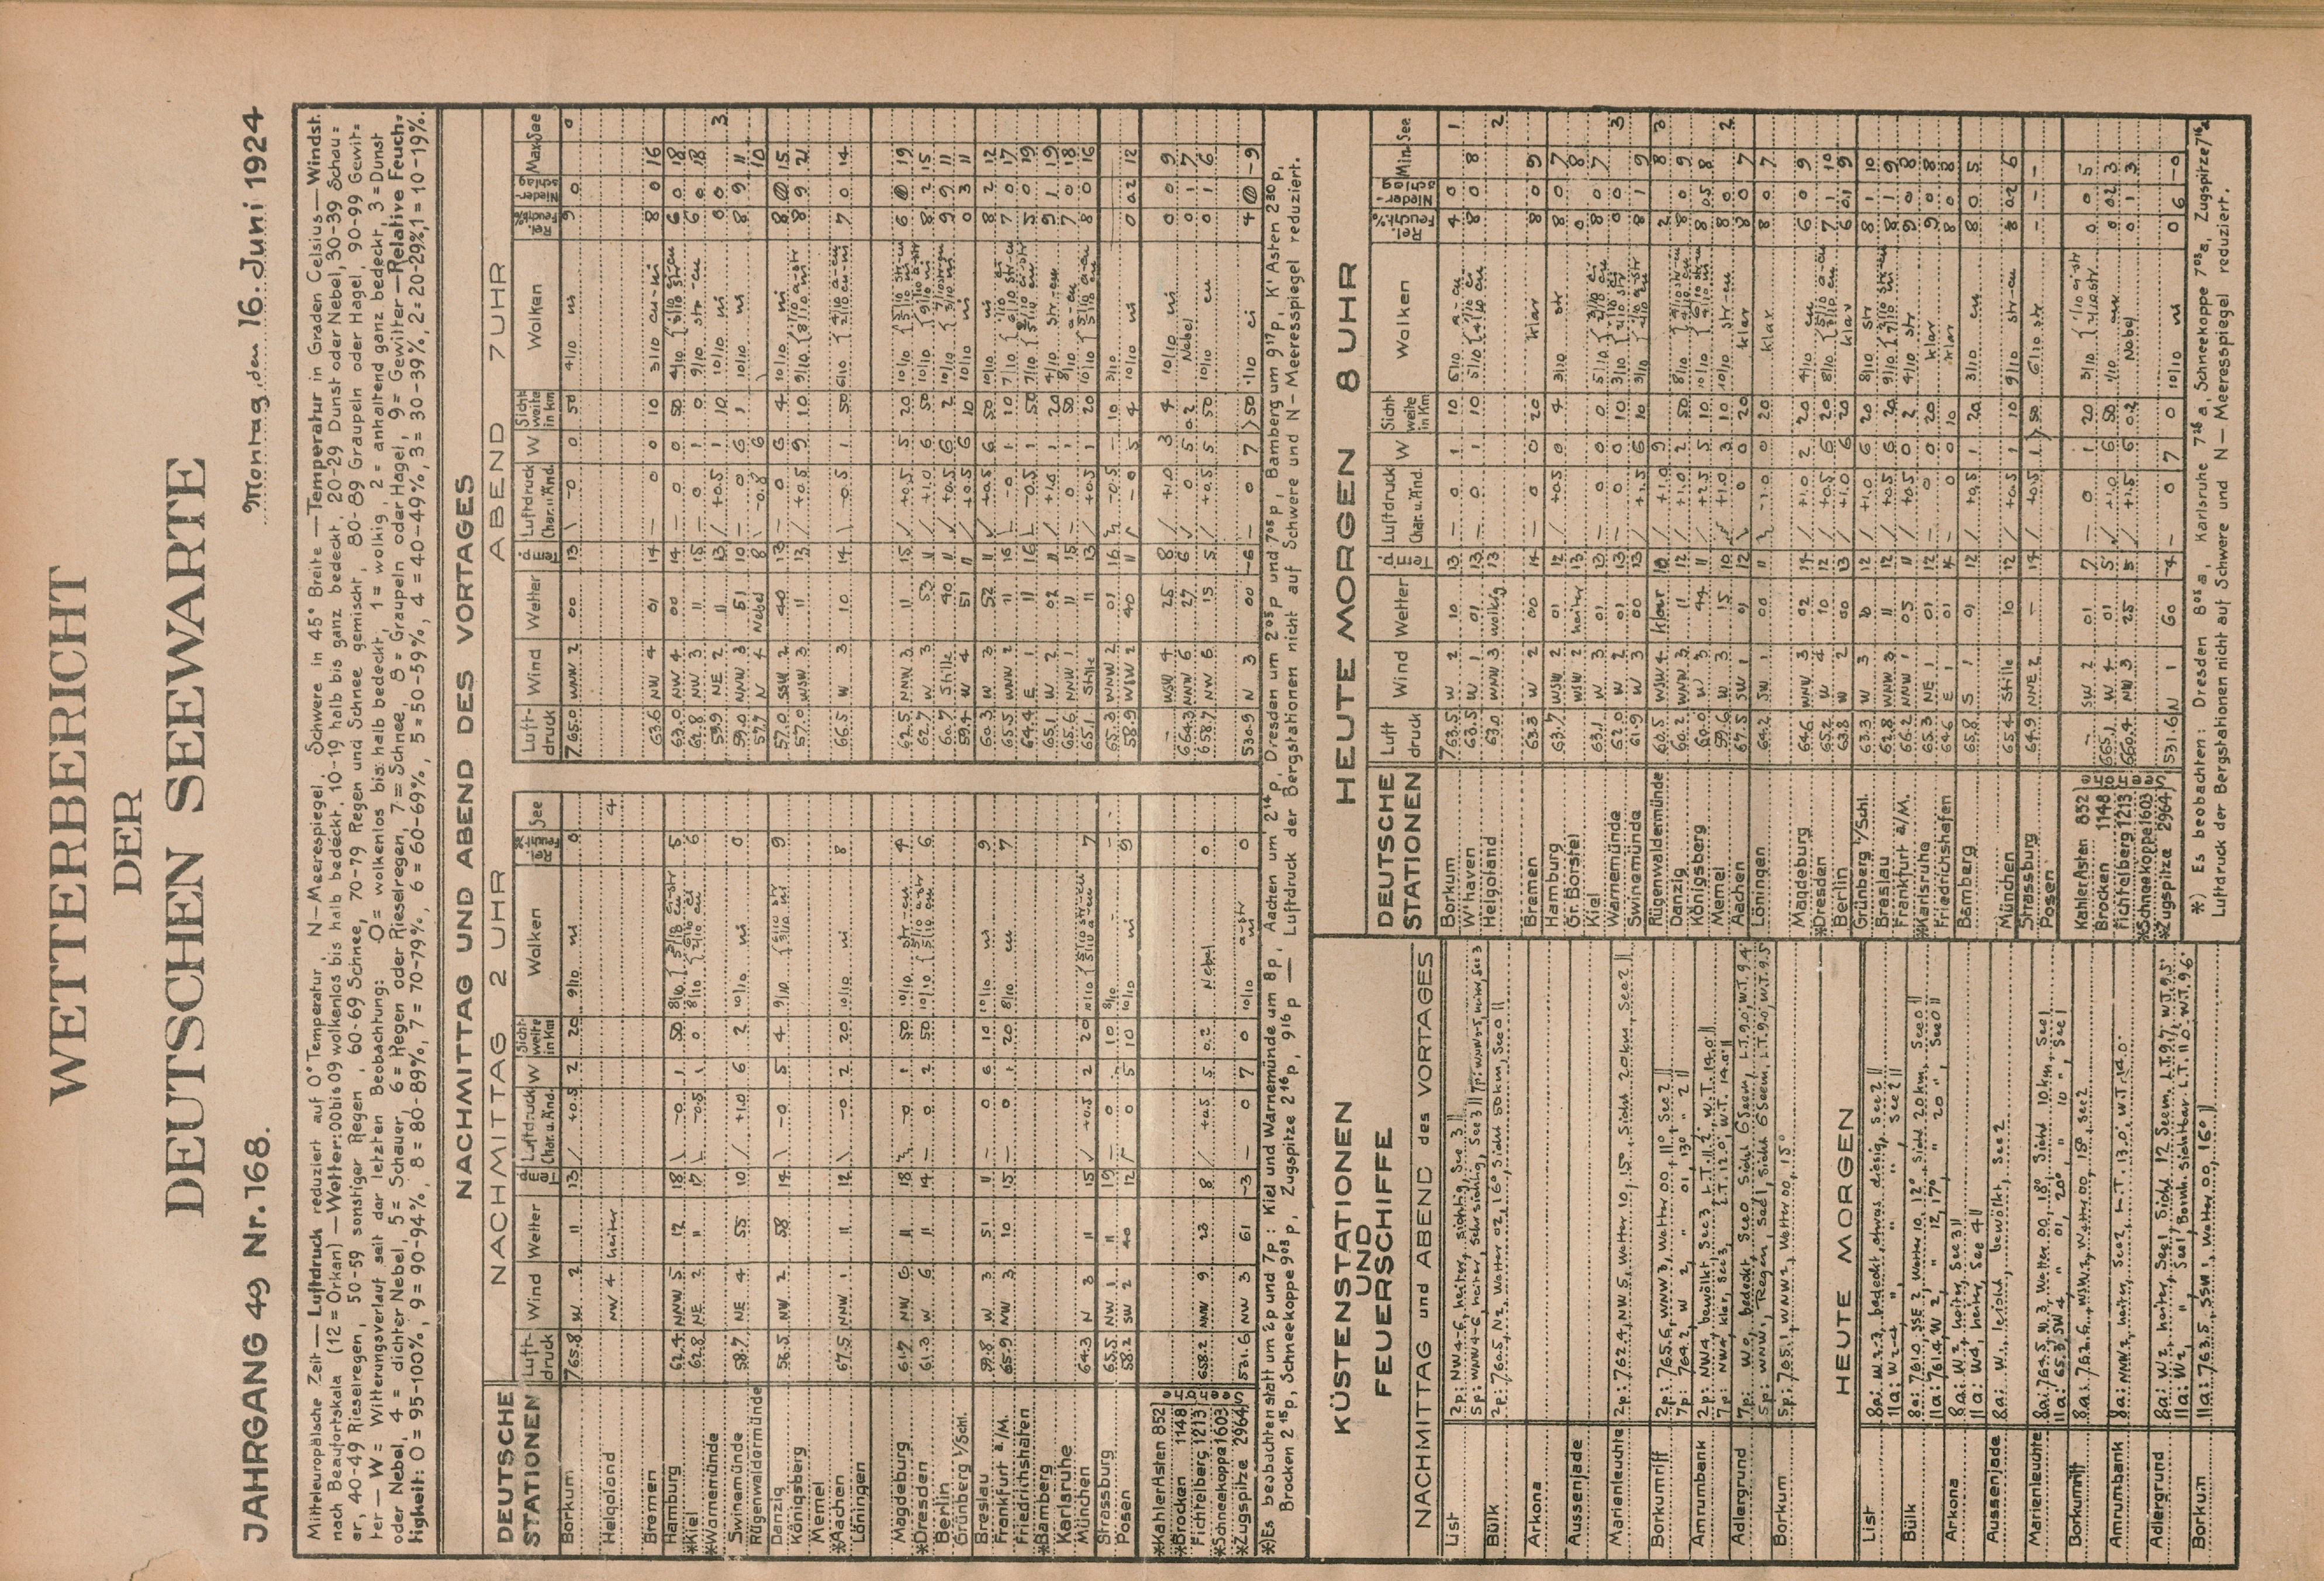 WETTERBERICHT
DER
DEUTSCHEN SEEWARTE
JAHRGANG 49 Nr. 168.
Montag, den 16. Juni 1924
Mitteleuropäische Zeit — Luftdruck reduziert auf 0° Temperatur, N-Meeresspiegel, Schwere in 45° Breite — Temperatur in Graden Celsius — Windst.
nach Beaufortskala (12 = Orkan) — Wetter: 00 bis 09 wolkenlos bis halb bedeckt, 10-19 halb bis ganz bedeckt, 20-29 Dunst oder Nebel, 30-39 Schau=
er, 40-49 Rieselregen, 50-59 sonstiger Regen, 60-69 Schnee, 70-79 Regen und Schnee gemischt, 80-89 Graupeln oder Hagel, 90-99 Gewit=
ter — W = Witterungsverlauf seit der letzten Beobachtung: 0 = wolkenlos bis halb bedeckt, 1 = wolkig, 2 = anhaltend ganz bedeckt, 3 = Dunst
oder Nebel, 4 = dichter Nebel, 5 = Schauer, 6 = Regen oder Rieselregen, 7 = Schnee, 8 = Graupeln oder Hagel, 9 = Gewitter — Relative Feuch=
tigkeit: 0 = 95-100%, 9 = 90-94%, 8 = 80-89%, 7 = 70-79%, 6 = 60-69%, 5 = 50-59%, 4 = 40-49%, 3 = 30-39%, 2 = 20-29%, 1 = 10-19%.
NACHMITTAG UND ABEND DES VORTAGES
NACHMITTAG 2 UHR
ABEND 7 UHR
DEUTSCHE STATIONEN
Luft-druck Wind Wetter Luftdruck Char. u. Änd. W Sicht weite in km Wolken See
Luft-druck Wind Wetter Luftdruck Char. u. Änd. W Sicht weite in km Wolken Rel. Feucht.% Nieder-schlag Max. See
Borkum 765.8 W 2 11 13 / +0.5 2 20 9/10 ni 0 765.0 WNW 2 00 13 \ -0 0 50 4/10 ni 9 0 0
Helgoland NW 4 heiter 4
Bremen 63.6 NW 4 01 14 — 0 0 10 3/10 cu-ni 8 0 16
Hamburg 62.4 NNW 5 12 18 \ -0 1 50 8/10 5 63.0 NW 4 00 14 — 0 0 50 4/10 6 0 18
*Kiel 62.8 NE 2 11 17 \ -0.5 1 0 8/10 6 62.8 NW 3 11 15 — 0 1 0 9/10 str-cu 6 0 18
*Warnemünde 59.9 NE 2 11 13 / +0.5 1 10 10/10 ni 0 0 3
Swinemünde 58.7 NE 4 55 10 / +1.0 6 2 10/10 ni 0 59.0 NNW 3 51 10 — 0 6 1 10/10 ni 8 9 11
Rügenwaldermünde 57.7 N 4 Nebel 8 \ -0.8 6 10
Danzig 56.5 NW 2 58 14 \ -0 5 4 9/10 9 57.0 SSW 2 40 13 0 6 4 10/10 ni 8 15
Königsberg 57.0 WSW 3 11 13 / +0.5 9 10 9/10 8 9 21
Memel
*Aachen 67.5 NNW 1 11 12 \ -0 2 20 10/10 ni 8 66.5 W 3 10 14 \ -0.5 1 50 6/10 7 0 14
Löningen
Magdeburg 61.7 NW 6 11 18 -0 1 50 10/10 str-cu 4 62.5 NNW 3 11 15 / +0.5 5 20 10/10 6 19
*Dresden 61.3 W 6 11 14 — 0 2 50 10/10 6 62.7 W 3 53 11 / +1.0 6 50 10/10 8 2 15
Berlin 60.7 Stille 40 11 +0.5 6 2 10/10 9 9 11
Grünberg i/Schl. 59.4 W 4 51 11 / +0.5 6 10 10/10 ni 0 3 11
Breslau 59.8 W 3 51 11 — 0 6 10 10/10 ni 9 60.3 W 3 52 11 +0.5 6 50 10/10 ni 8 2 12
Frankfurt a./M. 65.9 NW 3 10 15 — 0 1 20 8/10 cu 7 65.5 WNW 2 11 16 -0 1 10 7/10 7 0 17
Friedrichshafen 64.4 E 1 11 16 \ -0.5 1 50 7/10 5 0 19
*Bamberg 65.1 W 2 02 11 / +1.6 1 20 4/10 str-cu 9 1 19
Karlsruhe 65.6 NNW 1 11 15 0 1 50 8/10 a-cu 7 0 18
München 64.3 N 3 11 15 +0.5 2 20 10/10 7 65.1 Stille 11 13 / +0.5 1 20 10/10 8 0 16
Strassburg 65.5 NW 1 11 19 — 0 10 8/10 — 65.3 WNW 2 01 16 -0.5 — 10 3/10
Posen 58.2 SW 2 40 12 0 5 10 10/10 ni 9 58.9 WSW 2 40 11 -0 5 4 10/10 ni 0 0.2 12
*Kahler Asten 852 — WSW 4 25 8 / +1.0 3 4 10/10 ni 0 0 9
*Brocken 1148 664.3 NNW 6 27 6 0 5 0.2 Nebel 0 1 7
Fichtelberg 1213 658.2 NNW 9 23 8 / +0.5 5 0.2 Nebel 0 658.7 NW 6 15 5 / +0.5 5 50 10/10 cu 0 1 6
*Schneekoppe 1603
*Zugspitze 2964 531.6 NW 3 61 -3 — 0 7 0 10/10 a-str 0 530.9 N 3 00 -6 — 0 7 >50 1/10 ci 4 -9
*) Es beobachten statt um 2p und 7p: Kiel und Warnemünde um 8p, Aachen um 2¹⁴p, Dresden um 2⁰⁵p und 7⁰⁵p, Bamberg um 9¹⁷p, K'Asten 2³⁰p,
Brocken 2¹⁵p, Schneekoppe 9⁰³p, Zugspitze 2¹⁶p, 9¹⁶p — Luftdruck der Bergstationen nicht auf Schwere und N-Meeresspiegel reduziert.
KÜSTENSTATIONEN
UND
FEUERSCHIFFE
NACHMITTAG und ABEND des VORTAGES
List 2p: NW 4-6, heiter, sichtig, See 3 ||
5p: WNW 4-6, heiter, sehr sichtig, See 3 ||
Bülk 2p: 760.5 N 2 Wetter 02, 16° Sicht 50 km, See 0 ||
Arkona
Aussenjade
Marienleuchte 2p: 762.4, NW 5, Wetter 10, 15°, Sicht 20 km, See 2 ||
Borkumriff 2p: 765.6, WNW 3, Wetter 00, 11°, See 2 ||
7p: 764.2, W 2, " 01, 13° " 2 ||
Amrumbank 2p: NW 4, bewölkt See 3 L.T. 11.2° W.T. 14.0° ||
7p: NW 4, klar, See 3, L.T. 12.0°, W.T. 14.0° ||
Adlergrund 7p: W 0, bedeckt, See 0 Sicht 6 Seem., L.T. 9.0°, W.T. 9.4°
5p: WNW 1, Regen, See 1, Sicht 6 Seem., L.T. 9.0°, W.T. 9.5°
Borkum 5p: 765.1, WNW 2, Wetter 00, 15°
HEUTE MORGEN
List 8a: W 2-3, bedeckt, etwas diesig, See 2 ||
11a: W 2-4 " " " , See 2 ||
Bülk 8a: 761.0, SSE 2, Wetter 10, 12°, Sicht 20 km, See 0 ||
11a: 761.4, W 2, " 12, 17° " 20 " , See 0 ||
Arkona 8a: W 2, heiter, See 3 ||
11a: W 4, heiter, See 4 ||
Aussenjade 8a: W 1, leicht bewölkt, See 2
Marienleuchte 8a: 764.5, W 3, Wetter 00, 18°, Sicht 10 km, See 1
11a: 65.3, SW 4, " 01, 20°, " 10 " , See 1
Borkumriff 8a: 762.6, WSW 2, Wetter 00, 15°, See 2
Amrumbank 8a: NNW 2, heiter, See 2, L.T. 13.0°, W.T. 14.0°
Adlergrund 8a: W 2, heiter, See 1, Sicht 12 Seem. L.T. 9.7°, W.T. 9.5°
11a: W 2, " , See 1, Bornh. sichtbar, L.T. 11.0°, W.T. 9.6°
Borkum 11a: 763.5, SSW 1, Wetter 00, 16° ||
HEUTE MORGEN 8 UHR
DEUTSCHE STATIONEN Luft druck Wind Wetter Luftdruck Char. u. Änd. W Sicht weite in Km Wolken Rel. Feucht.% Nieder-schlag Min. See
Borkum 763.5 W 2 10 13 — 0 1 10 6/10 4 0 1
W'haven 63.5 W 1 01 13 — 0 1 10 5/10 8 0 8
Helgoland 63.0 WSW 3 wolkig 13 2
Bremen 63.3 W 2 00 14 — 0 0 20 klar 8 0 9
Hamburg 63.7 WSW 2 01 12 / +0.5 0 4 3/10 str 8 0 7
Gr. Borstel WSW 2 heiter 13 0 8
Kiel 63.1 W 3 01 13 — 0 0 0 5/10 8 0 7
Warnemünde 62.0 W 2 01 13 — 0 0 10 3/10 0 0 3
Swinemünde 61.9 W 3 00 13 / +1.5 6 10 3/10 8 1 9
Rügenwaldermünde 60.5 WSW 4 klar 10 / +1.0 9 2 8 3
Danzig 60.2 WNW 3 11 12 / +1.0 2 50 8/10 8 0 9
Königsberg 60.0 W 3 44 11 / +2.5 5 10 10/10 8 0.5 8
Memel 59.6 W 3 15 10 +1.0 3 10 10/10 str-cu 8 0 2
Aachen 67.5 SW 1 01 12 \ 0 0 20 klar 8 0 7
Löningen 64.2 SW 1 00 11 -1.0 0 20 klar 8 0 7
Magdeburg 64.6 WNW 3 02 14 / +1.0 2 20 4/10 cu 6 0 9
*Dresden 65.2 W 4 10 12 / +0.5 6 20 8/10 7 1 10
Berlin 63.8 W 2 00 13 / +1.0 6 20 klar 6 0.1 9
Grünberg i/Schl. 63.3 W 3 10 12 / +1.0 6 20 8/10 str 8 1 10
Breslau 62.8 WNW 3 11 12 / +0.5 6 20 9/10 8 1 9
Frankfurt a/M. 66.2 NNW 1 05 11 / +0.5 0 2 4/10 str 9 0 8
*Karlsruhe 65.3 NE 1 01 12 — 0 0 20 klar 9 0 8
Friedrichshafen 64.6 E 1 01 14 0 0 10 klar 8 0 8
Bamberg 65.8 S 1 01 12 / +0.5 1 20 3/10 cu 8 0 5
München 65.4 Stille 10 12 / +0.5 1 10 9/10 str-cu 8 0.2 6
Strassburg 64.9 NNE 2 — 14 / +0.5 1 >50 6/10 str — — —
Posen
Kahler Asten 852 — SW 2 01 7 — 0 1 20 3/10 0 0 5
Brocken 1148 665.1 W 4 01 5 +1.0 6 50 1/10 cu 0 0.2 3
Fichtelberg 1213 660.4 NW 3 25 5 / +1.5 6 0.2 Nebel 0 1 3
*Schneekoppe 1603
*Zugspitze 2964 531.6 N 1 60 -4 — 0 7 0 10/10 ni 0 6 -0
*) Es beobachten: Dresden 8⁰⁵a, Karlsruhe 7²⁶a, Schneekoppe 7⁰³a, Zugspitze 7¹⁶a
Luftdruck der Bergstationen nicht auf Schwere und N-Meeresspiegel reduziert.